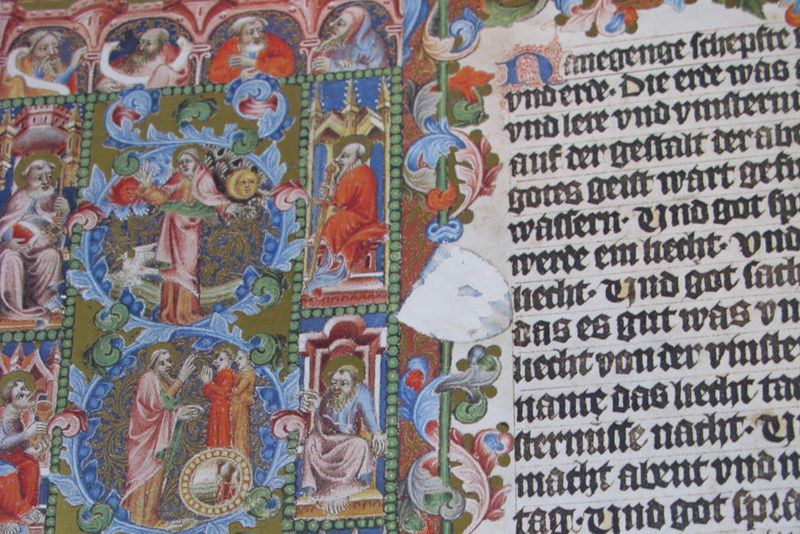 Nanegenge schepfte
vnd erde. Die erde was
vnd lere vnd vinstern
auf der gestalt der
gotes geist wart
wassern. Vnd got
werde ein liecht. Vnd
liecht. Vnd got sach
das es gut was vn
liecht von der vinster
nante das liecht ta
sternusse nacht. V
macht abent vnd
tag. Vnd got spra